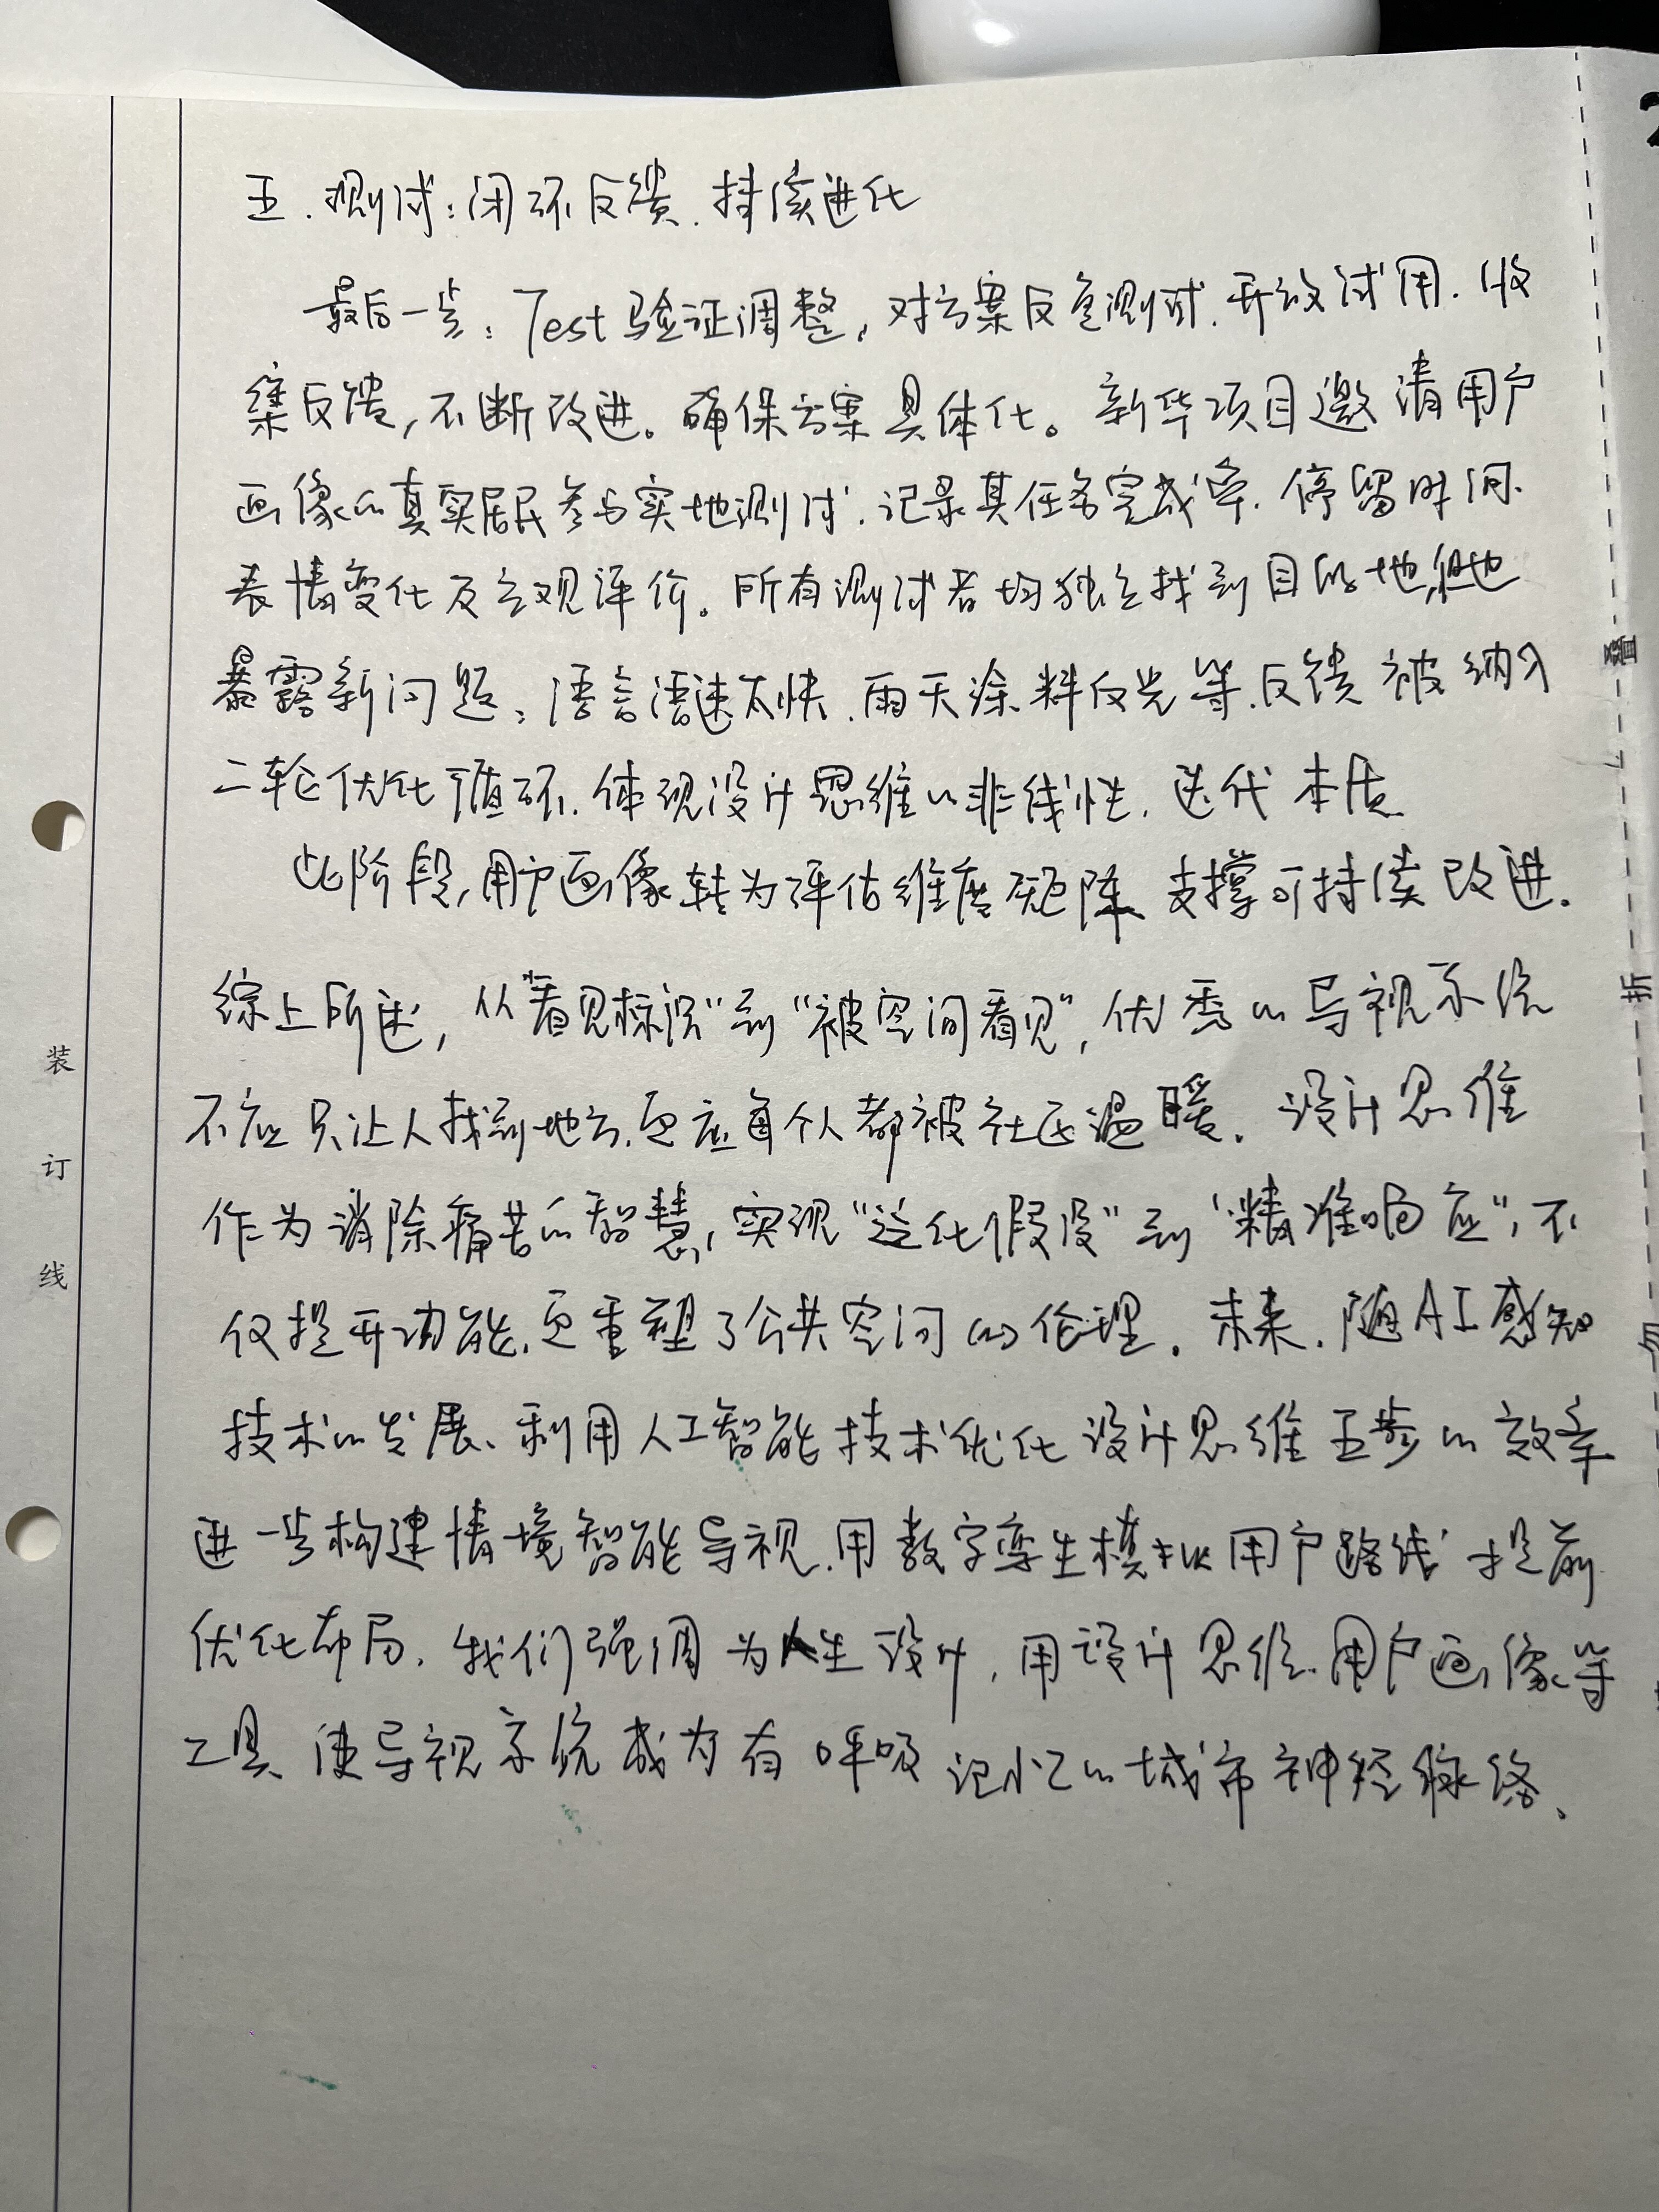 五.测试:闭环反馈.持续进化
最后一步:Test验证调整,对方案反复测试.开放试用.收
集反馈,不断改进。确保方案具体化。新华项目邀请用户
画像的真实居民参与实地测试.记录其任务完成率.停留时间.
表情变化及主观评价。所有测试者均独立找到目的地,但也
暴露新问题:语言语速太快.雨天涂料反光等.反馈被纳入
二轮优化循环.体现设计思维的非线性.迭代本质.
此阶段,用户画像转为评估维度矩阵.支撑可持续改进.
综上所述,从"看见标识"到"被空间看见",优秀的导视系统
不应只让人找到地方.更应每个人都被社区温暖.设计思维
作为消除痛苦的智慧,实现"泛化假设"到"精准响应",不
仅提升功能.更重塑了公共空间的伦理.未来.随AI感知
技术的发展、利用人工智能技术优化设计思维五步的效率
进一步构建情境智能导视.用数字孪生模拟用户路线提前
优化布局.我们强调为人生设计,用设计思维.用户画像等
工具、使导视系统成为有呼吸记忆的城市神经脉络、
装
订
线
叠
折
2